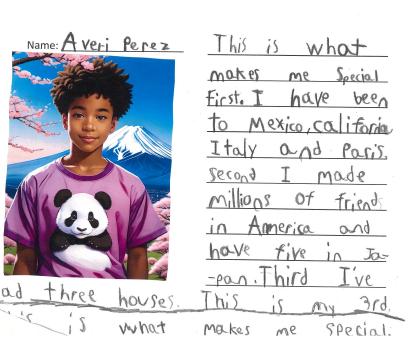 Name: Averi Perez
This is what
makes me Special
First. I have been
to Mexico, califonia
Italy and Paris.
second I made
millions of friends
in America and
have five in Ja-
-pan. Third I've
ad three houses. This is my 3rd.
is is what makes me special.